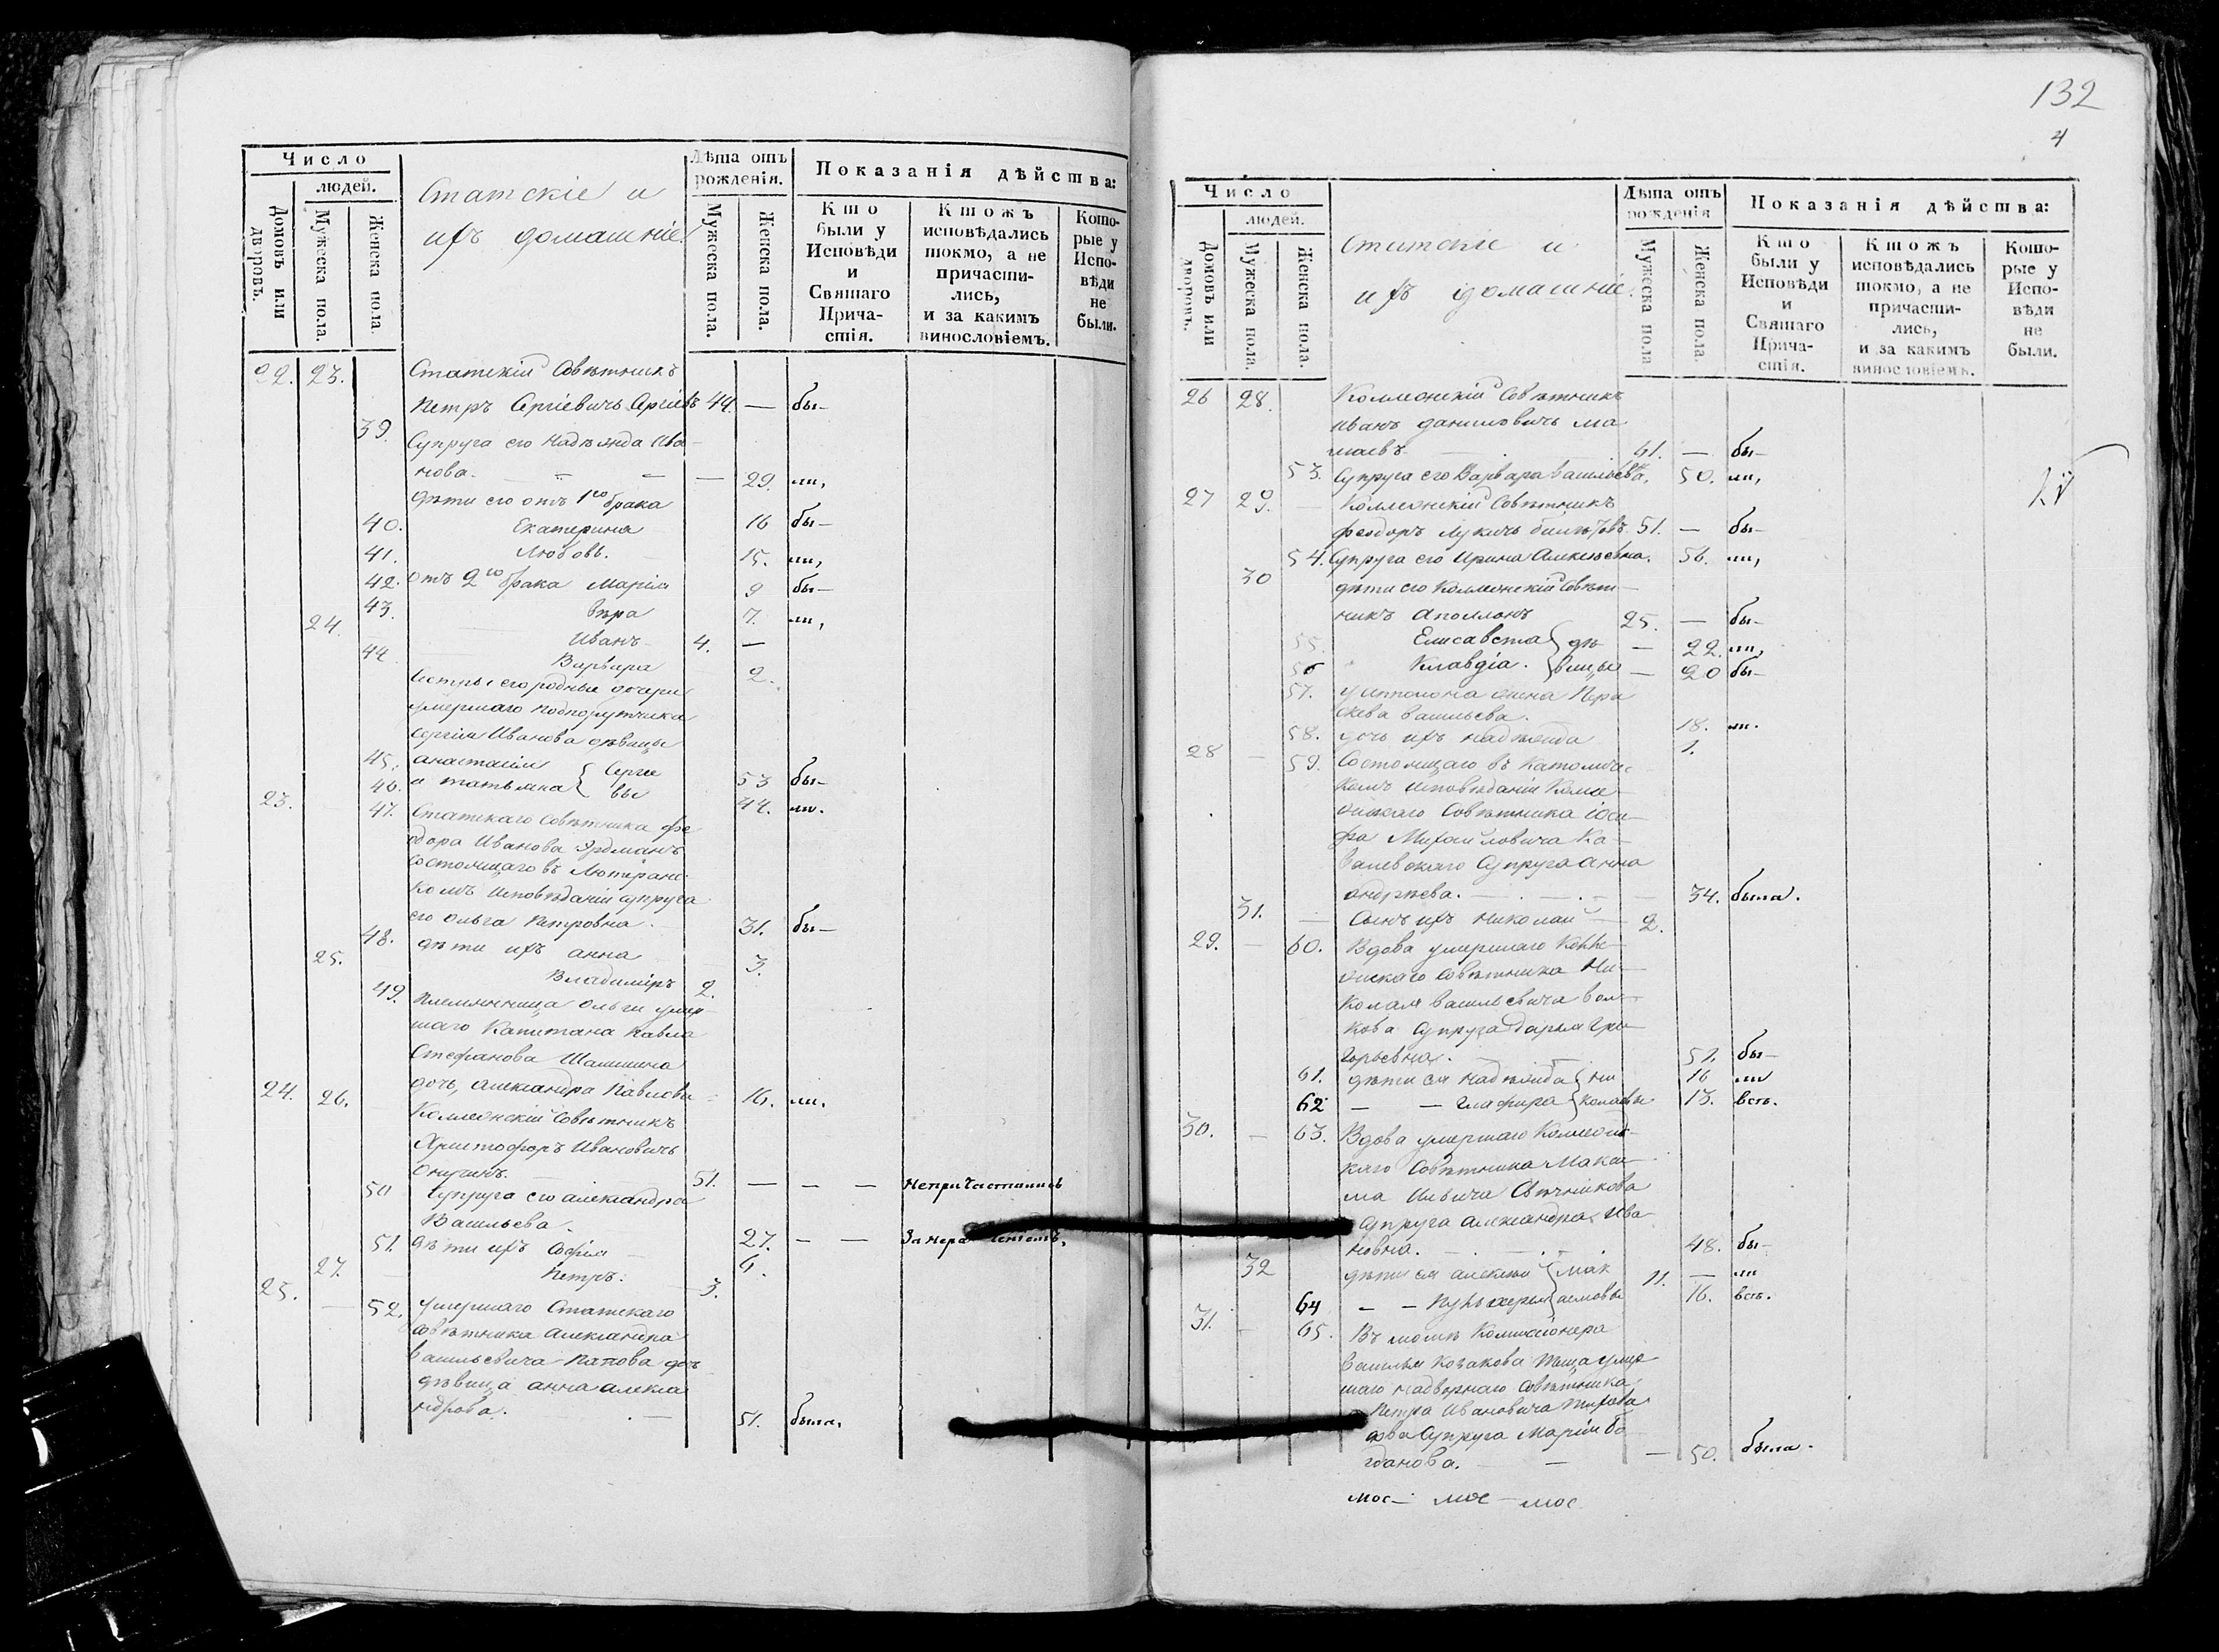 Число
людей.
Домовъ или дворовъ.
Мужеска пола.
Женска пола.
Статскіе и
ихъ домашніе.
Лѣта отъ
рожденія.
Мужеска пола.
Женска пола.
Показанія дѣйства:
Кто
были у
Исповѣди
и
Святаго
Прича-
стія.
Ктожъ
исповѣдались
токмо, а не
причасти-
лись,
и за какимъ
винословіемъ.
Кото-
рые у
Испо-
вѣди
не
были.
22. 23. Статскій Совѣтникъ
Петръ Сергіевичь Сергіевъ 44. — бы-
39. Супруга его Надежда Ива-
нова. — 29. ли,
дѣти его отъ 1го брака
40. Екатерина 16 бы-
41. Любовь. 15. ли,
42. отъ 2го брака Марія 9 бы-
43. Вѣра 7. ли,
24. Иванъ 4. —
44. Варвара 2.
Сестры его родныя дочери
умершаго Подпорутчика
Сергія Иванова дѣвицы
45. Анастасія { Сергіе 53 бы-
46. и Татьяна { вы 44. ли.
23. 47. Статскаго Совѣтника Фе
дора Иванова Эрдманъ
состоящаго въ Лютеранс
комъ Исповѣданіи супруга
его Ольга Петровна. 31. бы-
48. дѣти ихъ Анна 3.
25. Владиміръ 2.
49. Племянница Ольги умер
шаго Капитана Павла
Стефанова
дочь, Александра Павлова 16. ли.
24. 26. Коллежскій Совѣтникъ
Христофоръ Ивановичь
51. — — — Непричастились
50 Супруга его Александра
Васильева. 27. — — За
51. дѣти ихъ Софія
27. Петръ. 3.
25. — 52. Умершаго Статскаго
Совѣтника Александра
Васильевича Попова дочь
дѣвица Анна Алекса
ндрова. — 51. была,
132
4
Число
людей.
Домовъ или дворовъ.
Мужеска пола.
Женска пола.
Статскіе и
ихъ домашніе.
Лѣта отъ
рожденія
Мужеска пола
Женска пола.
Показанія дѣйства:
Кто
были у
Исповѣди
и
Святаго
Прича-
стія.
Ктожъ
исповѣдались
токмо, а не
причасти-
лись,
и за какимъ
винословіемъ.
Кото-
рые у
Испо-
вѣди
не
были.
26 28. Коллежскій Совѣтникъ
Иванъ Даниловичь Ма
61. — бы-
53. Супруга его Варвара Васильевна, 50. ли,
27 29. — Коллежскій Совѣтникъ
Феодоръ Лукичь 51. — бы-
54. Супруга его Ирина Алексѣевна. 56. ли,
30 дѣти его Коллежскій Совѣт-
никъ Аполлонъ 25. — бы-
55. Елисавета { дѣ — 22. ли,
56 Клавдія. { вицы — 20 бы-
57. У Аполлона жена Пра
сковья Васильева. 18. ли.
58. дочь ихъ Надежда 1.
28 — 59. Состоящаго въ Католичес
комъ Исповѣданіи Колле-
жскаго Совѣтника Іоси-
фа Михайловича Ка-
валевскаго Супруга Анна
Андреева. — 34. была.
31. — Сынъ ихъ Николай — 2.
29. — 60. Вдова умершаго Колле-
жскаго Совѣтника Ни-
колая Васильевича Вол-
кова Супруга Дарья Гри-
горьевна. 51. бы-
61. дѣти ея Надежда { Ни 16 ли
62 — — Глафира { колаевы 13. всѣ.
30. — 63. Вдова умершаго Коллежс-
каго Совѣтника Макси-
ма Ильича
Супруга Александра Ива
новна. — 48. бы-
32 дѣти ея Алексѣй { Мак 11. — ли
64 — — Пульхерія { симовы 16. всѣ.
31. — 65. Въ домѣ Коммисіонера
Василья Козакова теща умер
шаго Надворнаго Совѣтника
Петра Ивановича
Супруга Марія Бо
гданова. — 50. была.